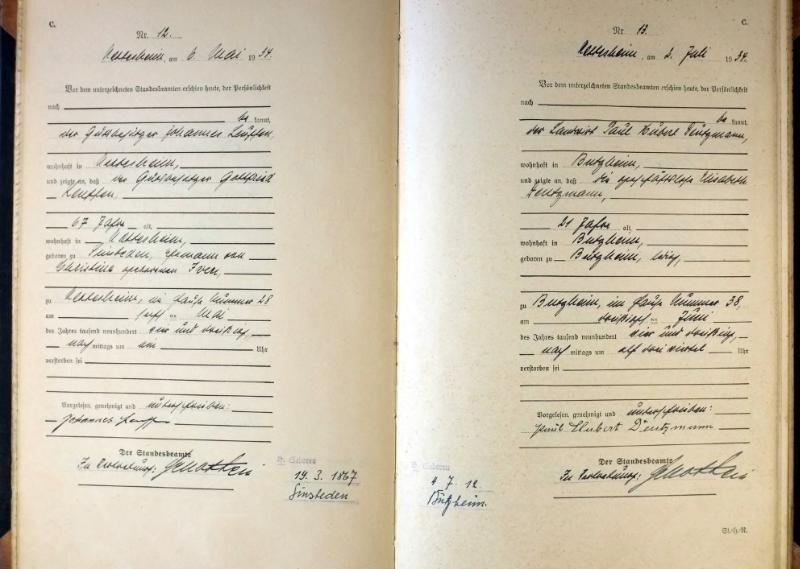 C.
Nr. 12.
Nettesheim, am 6. Mai 1934.
Vor dem unterzeichneten Standesbeamten erschien heute, der Persönlichkeit
nach
be kannt,
der Gutsbesitzer Johannes
wohnhaft in Nettesheim,
und zeigte an, daß der Gutsbesitzer Gottfried
67 Jahre alt,
wohnhaft in Nettesheim,
geboren zu Sinsteden, Ehemann von
Christina geborenen
zu Nettesheim, im Hause Nummer 28
am Mai
des Jahres tausend neunhundert vier und dreißig,
nach mittags um ein Uhr
verstorben sei
Vorgelesen, genehmigt und unterschrieben:
Johannes
Der Standesbeamte
In Vertretung:
Geboren
19. 3. 1867
Sinsteden
C.
Nr. 13.
Nettesheim, am 2. Juli 1934.
Vor dem unterzeichneten Standesbeamten erschien heute, der Persönlichkeit
nach
be kannt,
der Landwirt Paul Hubert
wohnhaft in Butzheim,
und zeigte an, daß die geschäftslose Elisabeth
21 Jahre alt,
wohnhaft in Butzheim,
geboren zu Butzheim, ledig,
zu Butzheim, im Hause Nummer 38,
am dreißigsten Juni
des Jahres tausend neunhundert vier und dreißig,
nach mittags um elf drei viertel Uhr
verstorben sei
Vorgelesen, genehmigt und unterschrieben:
Paul Hubert
Der Standesbeamte
In Vertretung:
Geboren
7. 12
Butzheim.
St/H/R.